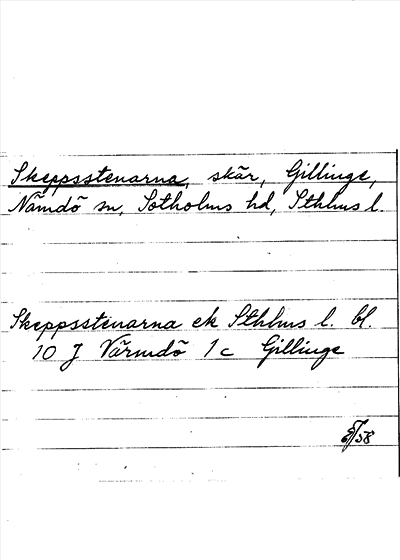 Skeppsstenarna, skär, Gillinge,
Nämdö sn, Sotholms hd, Sthlms l.
Skeppsstenarna ek Sthlms l. bl.
10 J Värmdö 1c Gillinge
/58